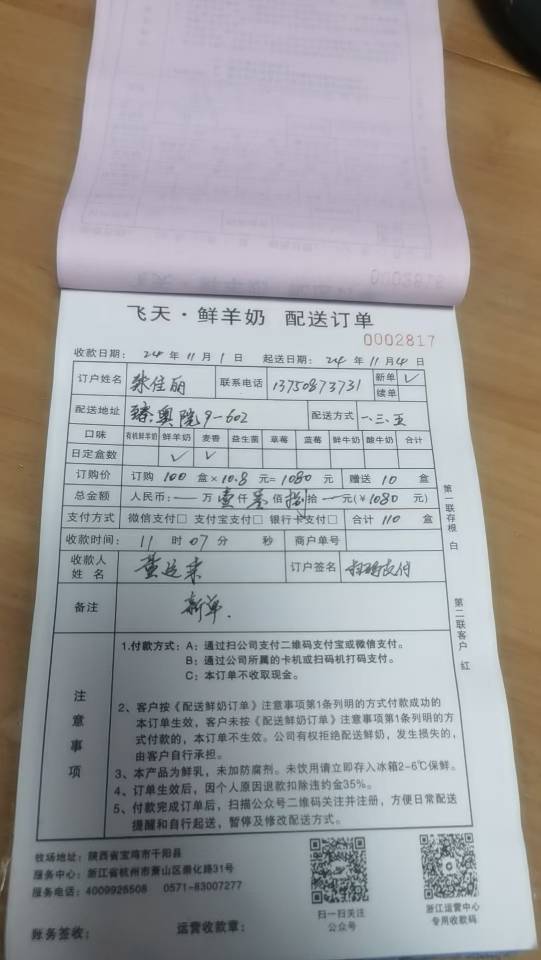 0002818
飞天·鲜羊奶 配送订单
0002817
收款日期：24年11月1日 起送日期：24年11月4日
订户姓名 张佳丽 联系电话 13750873731 新单 ✓
续单
配送地址 臻奥院9-602 配送方式 一、三、五
口味 有机鲜羊奶 鲜羊奶 麦香 益生菌 草莓 蓝莓 鲜牛奶 酸牛奶 合计
日定盒数 ✓ ✓
订购价 订购 100 盒×10.8元=1080元 赠送 10 盒
总金额 人民币：一万壹仟零佰捌拾一元(￥1080元)
支付方式 微信支付□ 支付宝支付□ 银行卡支付□ 合计 110 盒
收款时间：11时07分 秒 商户单号
收款人姓名 黄运来 订户签名 扫码支付
备注 新单.
第一联存根 白
第二联客户 红
注意事项
1.付款方式：A：通过扫公司支付二维码支付宝或微信支付。
B：通过公司所属的卡机或扫码机打码支付。
C：本订单不收取现金。
2、客户按《配送鲜奶订单》注意事项第1条列明的方式付款成功的
本订单生效，客户未按《配送鲜奶订单》注意事项第1条列明的方
式付款的，本订单不生效。公司有权拒绝配送鲜奶，发生损失的，
由客户自行承担。
3、本产品为鲜乳，未加防腐剂。未饮用请立即存入冰箱2-6℃保鲜。
4、订单生效后，因个人原因退款扣除违约金35%。
5、付款完成订单后，扫描公众号二维码关注并注册，方便日常配送
提醒和自行起送，暂停及修改配送方式。
牧场地址：陕西省宝鸡市千阳县
服务中心：浙江省杭州市萧山区崇化路31号
服务电话：4009926508 0571-83007277
扫一扫关注
公众号
浙江运营中心
专用收款码
账务签收： 运营收款章：